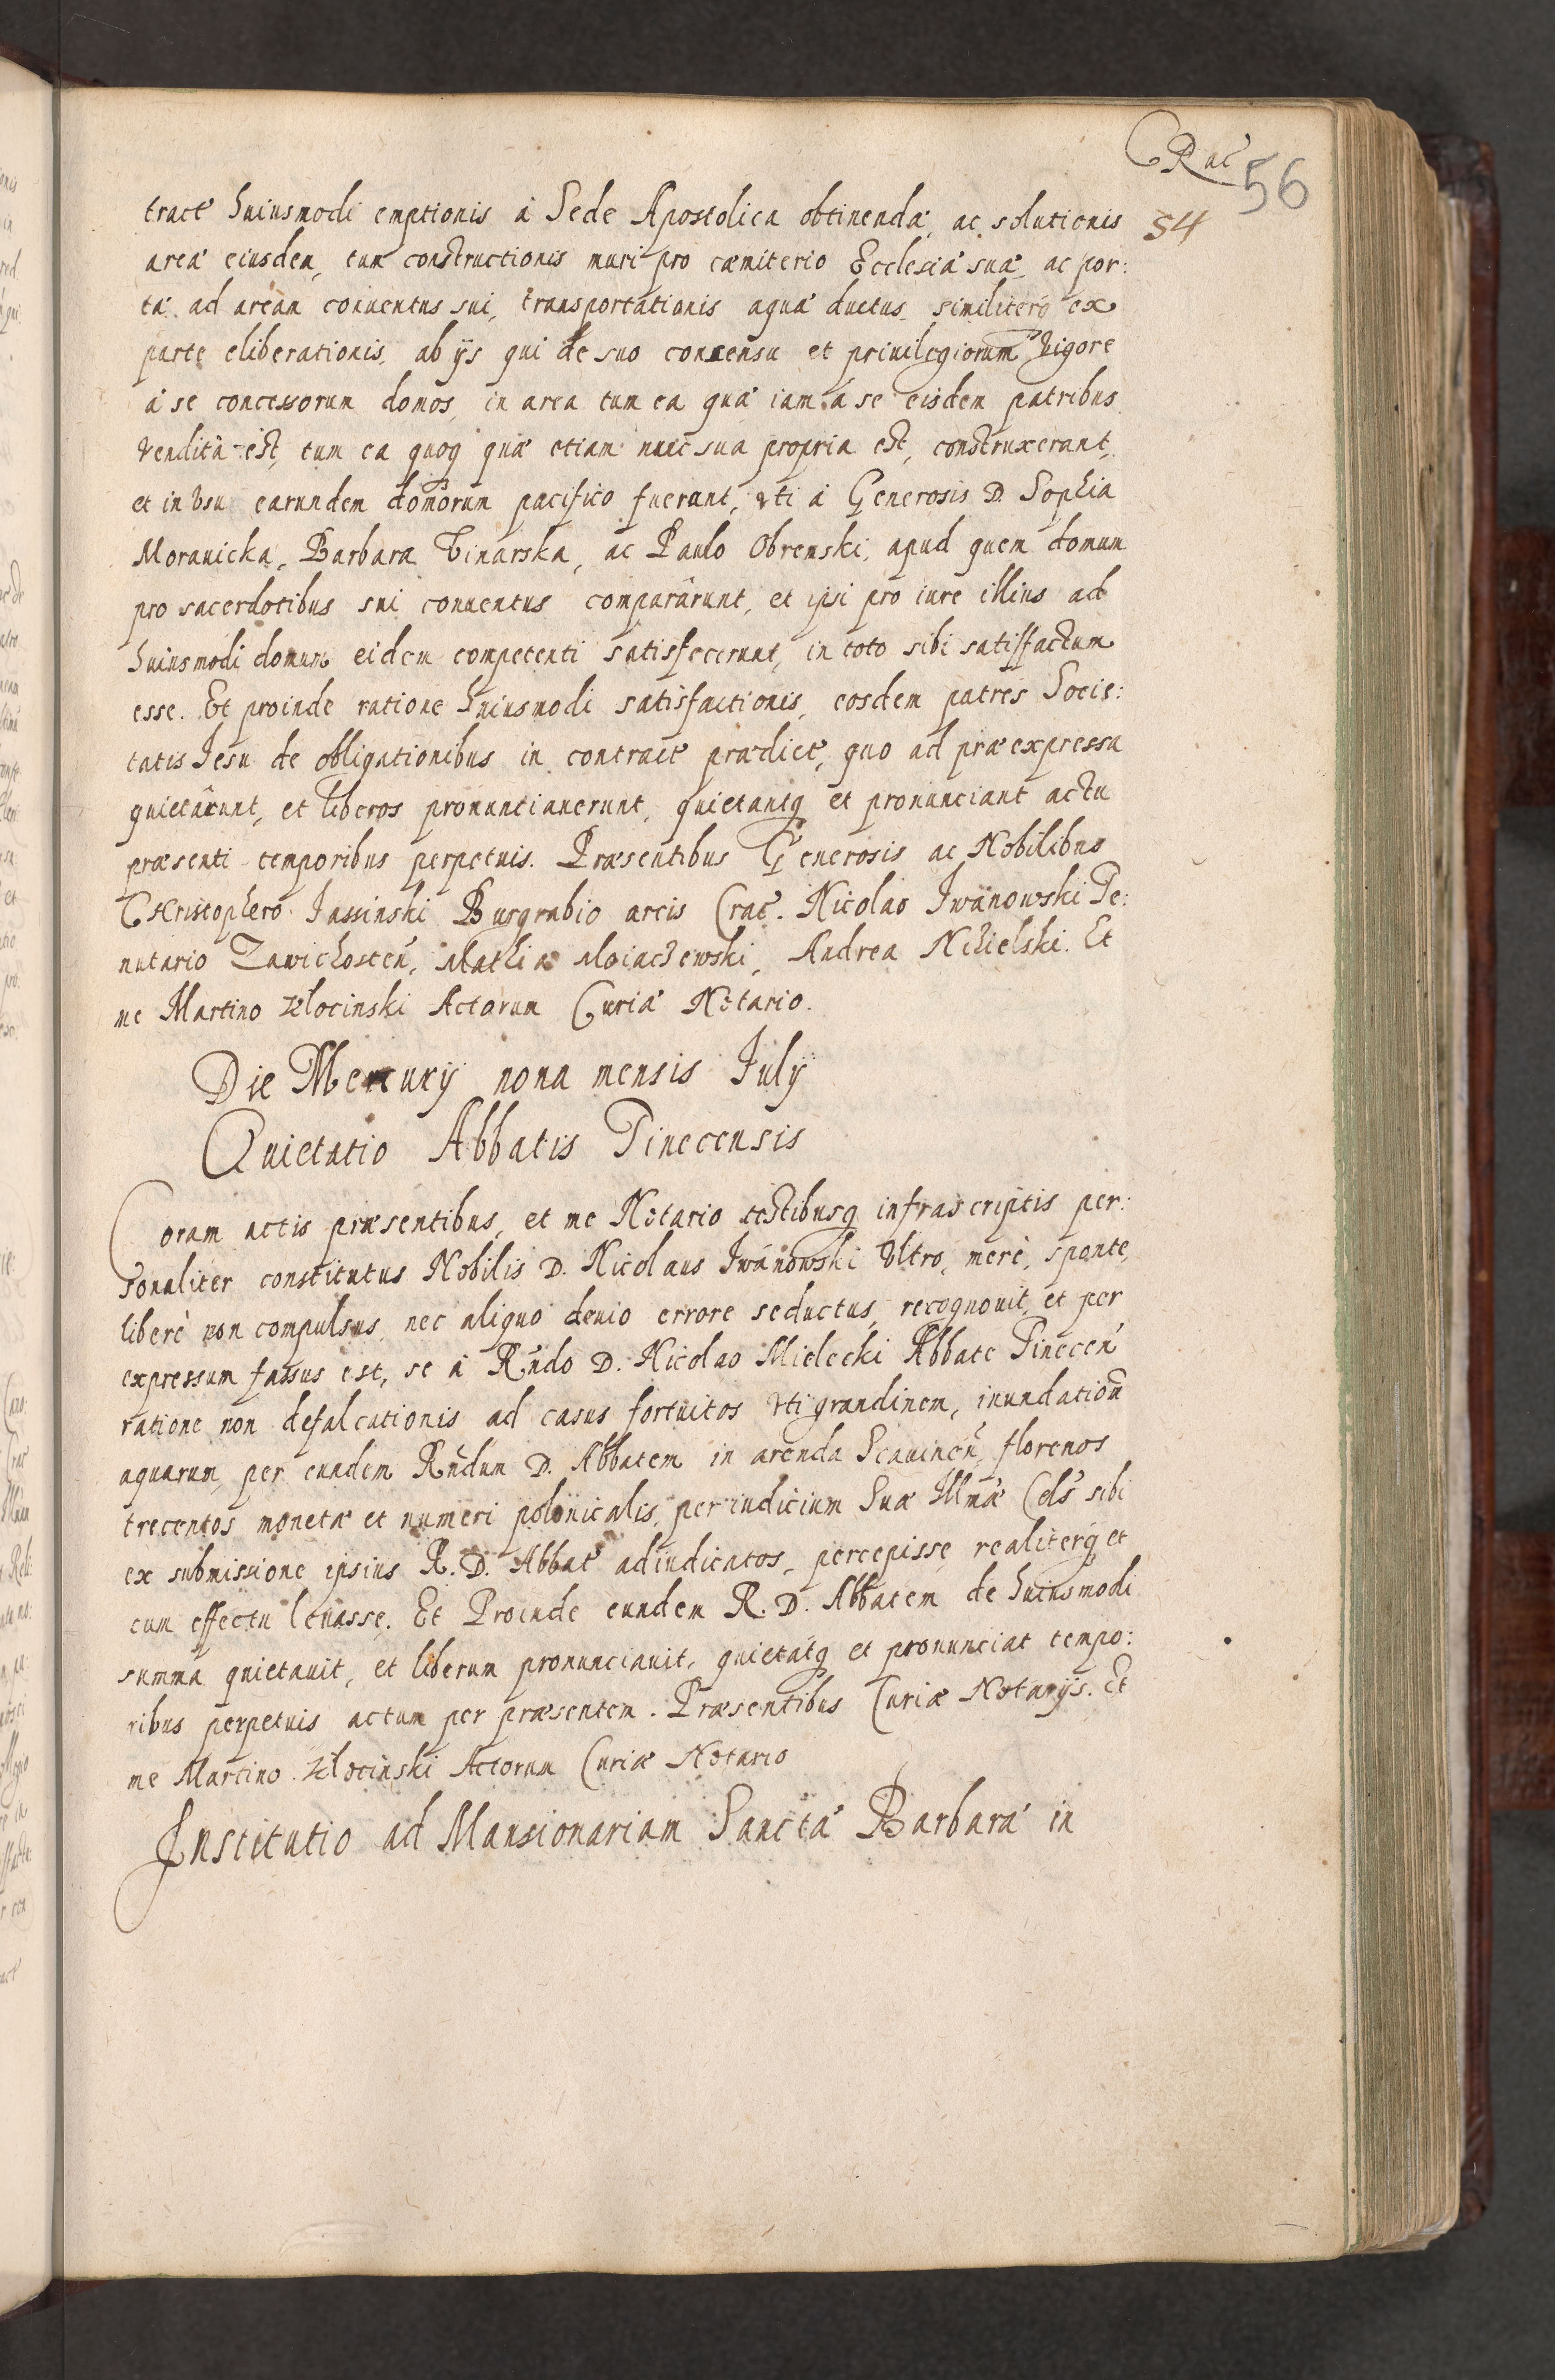 CRac
56
54
tract huiusmodi emptionis à Sede Apostolica obtinendæ, ac solutionis
areæ eiusdem, tum constructionis muri pro cæmiterio Ecclesiæ suæ, ac por:
tæ ad aream conuentus sui, transportationis aquæ ductus, similiterq ex
parte eliberationis, ab ijs qui de suo consensu et priuilegiorum vigore
à se concessorum domos, in area tum ea quæ iam à se eisdem patribus
vendita est, tum ea quoq quæ etiam nunc sua propria est, construxerant,
et in vsu earundem domorum pacifico fuerunt, vti à Generosis D. Sophia
Morauicka, Barbara Tinarska, ac Paulo Obremski, apud quem domum
pro sacerdotibus sui conuentus compararunt, et ipsi pro iure illius ad
huiusmodi domum eidem competenti satisfecerunt, in toto sibi satisfactum
esse. Et proinde ratione huiusmodi satisfactionis, eosdem patres Socie:
tatis Iesu de obligationibus in contract prædict, quo ad præexpressa
quietârunt, et liberos pronuntiauerunt, quietantq et pronunciant actu
præsenti temporibus perpetuis. Præsentibus Generosis ac Nobilibus
Christophero Jassinski Burgrabio arcis Crac. Nicolao Iwanowski Te:
nutario Zawichosten, Mathia Moiaczewski, Andrea Nihielski. Et
me Martino Złocinski Actorum Curiæ Notario.
Die Mercurij nona mensis Iulij
Quietatio Abbatis Tinecensis
Coram actis præsentibus, et me Notario testibusq infrascriptis per:
sonaliter constitutus Nobilis D. Nicolaus Iwanowski vltro, merè, sponte,
liberè non compulsus, nec aliquo deuio errore seductus, recognouit, et per
expressum fassus est, se à Rndo D. Nicolao Mielecki Abbate Tinecen
ratione non defalcationis ad casus fortuitos vti grandinem, inundation
aquarum, per eundem Rndum D. Abbatem in arenda Scauinen, florenos
trecentos monetæ et numeri polonicalis, per iudicium Suæ Illmæ Cels sibi
ex submissione ipsius R. D. Abbat adiudicatos, percepisse realiterq et
cum effectu leuasse. Et Proinde eundem R. D. Abbatem de huiusmodi
summa quietauit, et liberum pronunciauit, quietatq et pronunciat tempo:
ribus perpetuis actum per præsentem. Præsentibus Curiæ Notarijs. Et
me Martino Złocinski Actorum Curiæ Notario
Institutio ad Mansionariam Sanctæ Barbaræ in